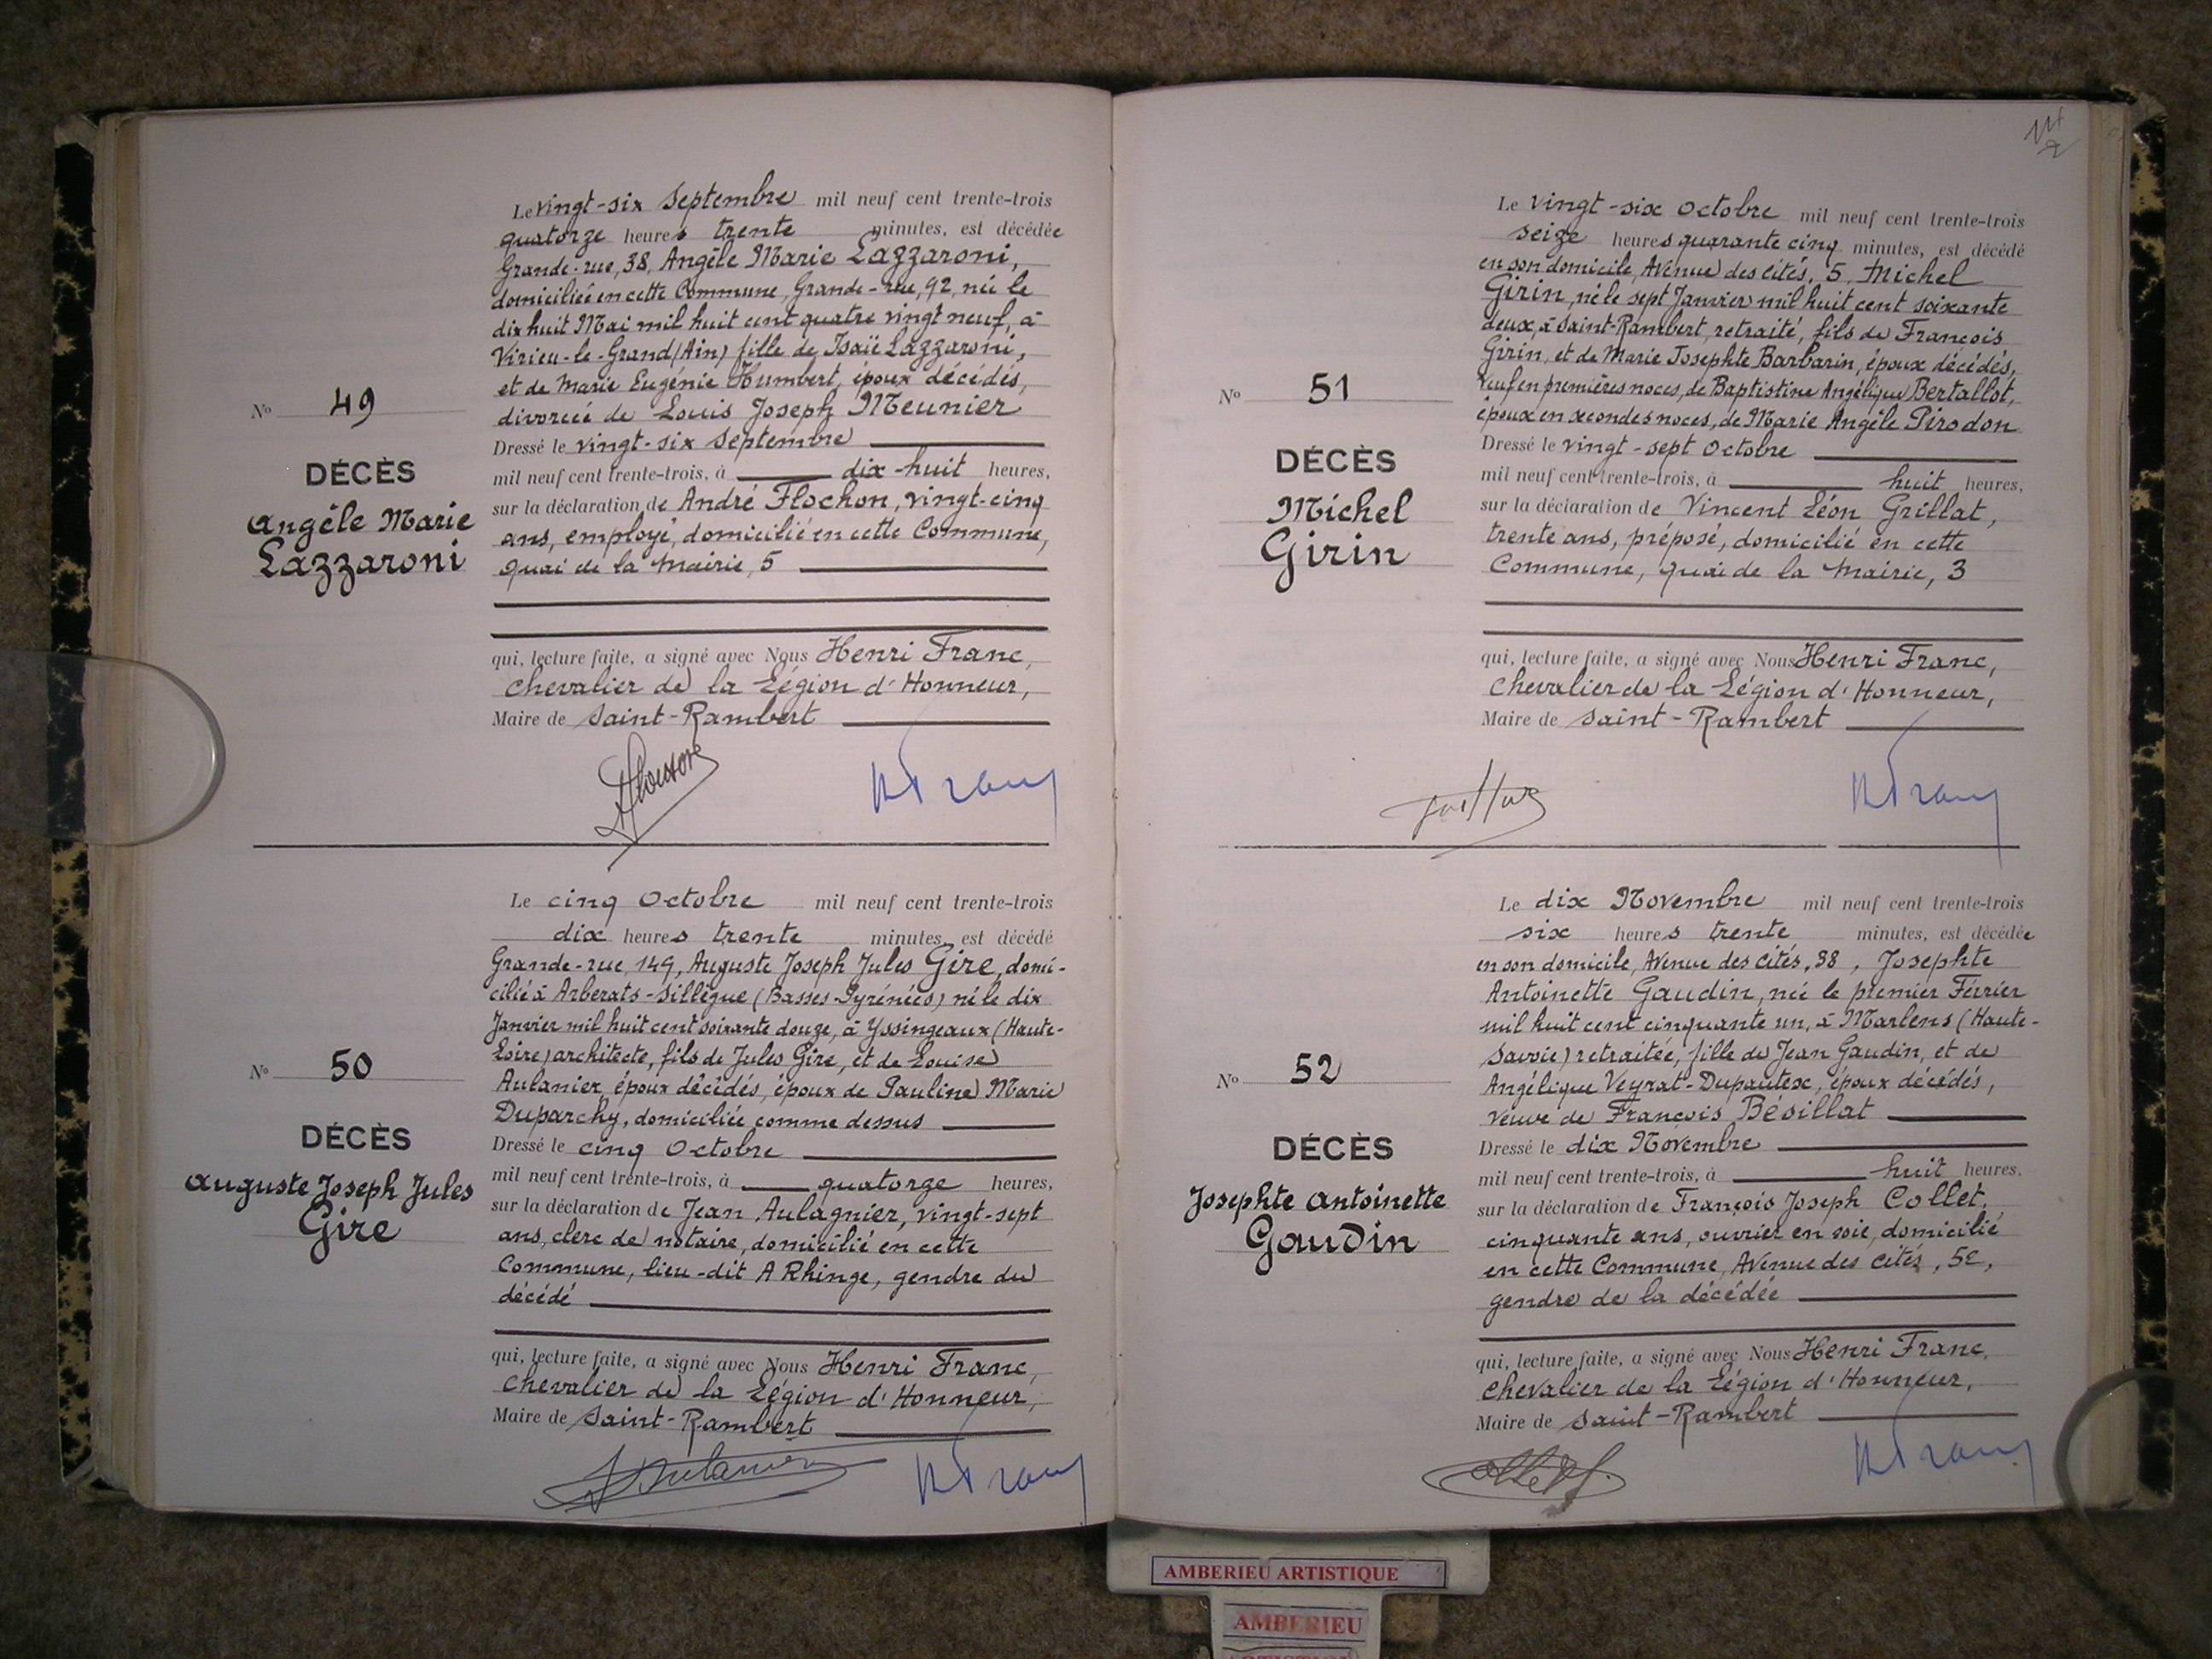 Le vingt-six Septembre mil neuf cent trente-trois
quatorze heures trente minutes, est décédée
Grande-rue, 38, Angèle Marie Lazzaroni,
domiciliée en cette Commune, Grande-rue, 92, née le
dix huit Mai mil huit cent quatre vingt neuf, à
Virieu-le-Grand (Ain) fille de Isaïe Lazzaroni,
et de Marie Eugénie Humbert, époux décédés,
divorcée de Louis Joseph Meunier
Nº 49
DÉCÈS
Angèle Marie
Lazzaroni
Dressé le vingt-six Septembre
mil neuf cent trente-trois, à dix-huit heures,
sur la déclaration de André Flochon, vingt-cinq
ans, employé, domicilié en cette Commune,
quai de la Mairie, 5
qui, lecture faite, a signé avec Nous Henri Franc,
Chevalier de la Légion d'Honneur,
Maire de Saint-Rambert
Le cinq Octobre mil neuf cent trente-trois
dix heures trente minutes, est décédé
Grande-rue, 149, Auguste Joseph Jules Gire, domi-
cilié à Arberats-Sillègue (Basses-Pyrénées) né le dix
Janvier mil huit cent soixante douze, à Yssingeaux (Haute-
Loire) architecte, fils de Jules Gire, et de Louise
Aulanier, époux décédés, époux de Pauline Marie
Duparchy, domiciliée comme dessus
Nº 50
DÉCÈS
Auguste Joseph Jules
Gire
Dressé le cinq Octobre
mil neuf cent trente-trois, à quatorze heures,
sur la déclaration de Jean Aulagnier, vingt-sept
ans, clerc de notaire, domicilié en cette
Commune, lieu-dit A Rhinge, gendre du
décédé
qui, lecture faite, a signé avec Nous Henri Franc,
Chevalier de la Légion d'Honneur,
Maire de Saint-Rambert
Le vingt-six Octobre mil neuf cent trente-trois
seize heures quarante cinq minutes, est décédé
en son domicile, Avenue des Cités, 5, Michel
Girin, né le sept Janvier mil huit cent soixante
deux, à Saint-Rambert, retraité, fils de François
Girin, et de Marie Josephte Barbarin, époux décédés,
veuf en premières noces, de Baptistine Angélique Bertallot,
époux en secondes noces, de Marie Angèle Pirodon
Nº 51
DÉCÈS
Michel
Girin
Dressé le vingt-sept Octobre
mil neuf cent trente-trois, à huit heures,
sur la déclaration de Vincent Léon Grillat,
trente ans, préposé, domicilié en cette
Commune, quai de la Mairie, 3
qui, lecture faite, a signé avec Nous Henri Franc,
Chevalier de la Légion d'Honneur,
Maire de Saint-Rambert
Le dix Novembre mil neuf cent trente-trois
six heures trente minutes, est décédée
en son domicile, Avenue des Cités, 38, Josephte
Antoinette Gaudin, née le premier Février
mil huit cent cinquante un, à Marlens (Haute-
Savoie) retraitée, fille de Jean Gaudin, et de
Angélique Veyrat-Dupautex, époux décédés,
veuve de François Bésillat
Nº 52
DÉCÈS
Josephte Antoinette
Gaudin
Dressé le dix Novembre
mil neuf cent trente-trois, à huit heures,
sur la déclaration de François Joseph Collet,
cinquante ans, ouvrier en soie, domicilié
en cette Commune, Avenue des Cités, 52,
gendre de la décédée
qui, lecture faite, a signé avec Nous Henri Franc,
Chevalier de la Légion d'Honneur,
Maire de Saint-Rambert
AMBERIEU ARTISTIQUE
AMBERIEU